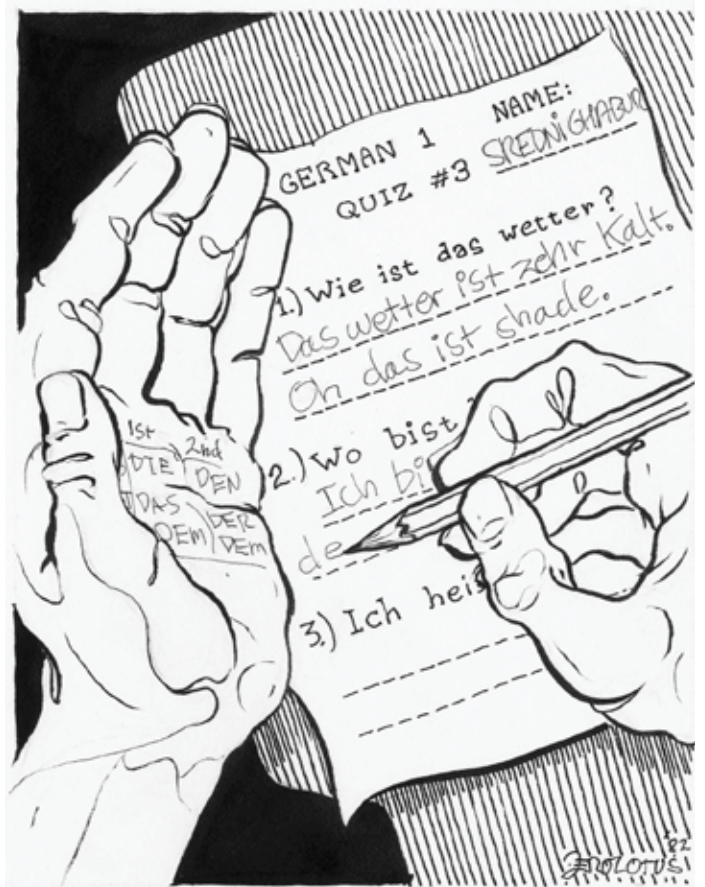 NAME:
GERMAN 1
QUIZ #3
1.) Wie ist das wetter?
Das wetter ist zehr Kalt.
Oh das ist shade.
2.) Wo bist
Ich bi
de
3.) Ich heiß
1st 2nd
DIE DEN
DAS DER
DEM DEM
'82
EROLOTUS